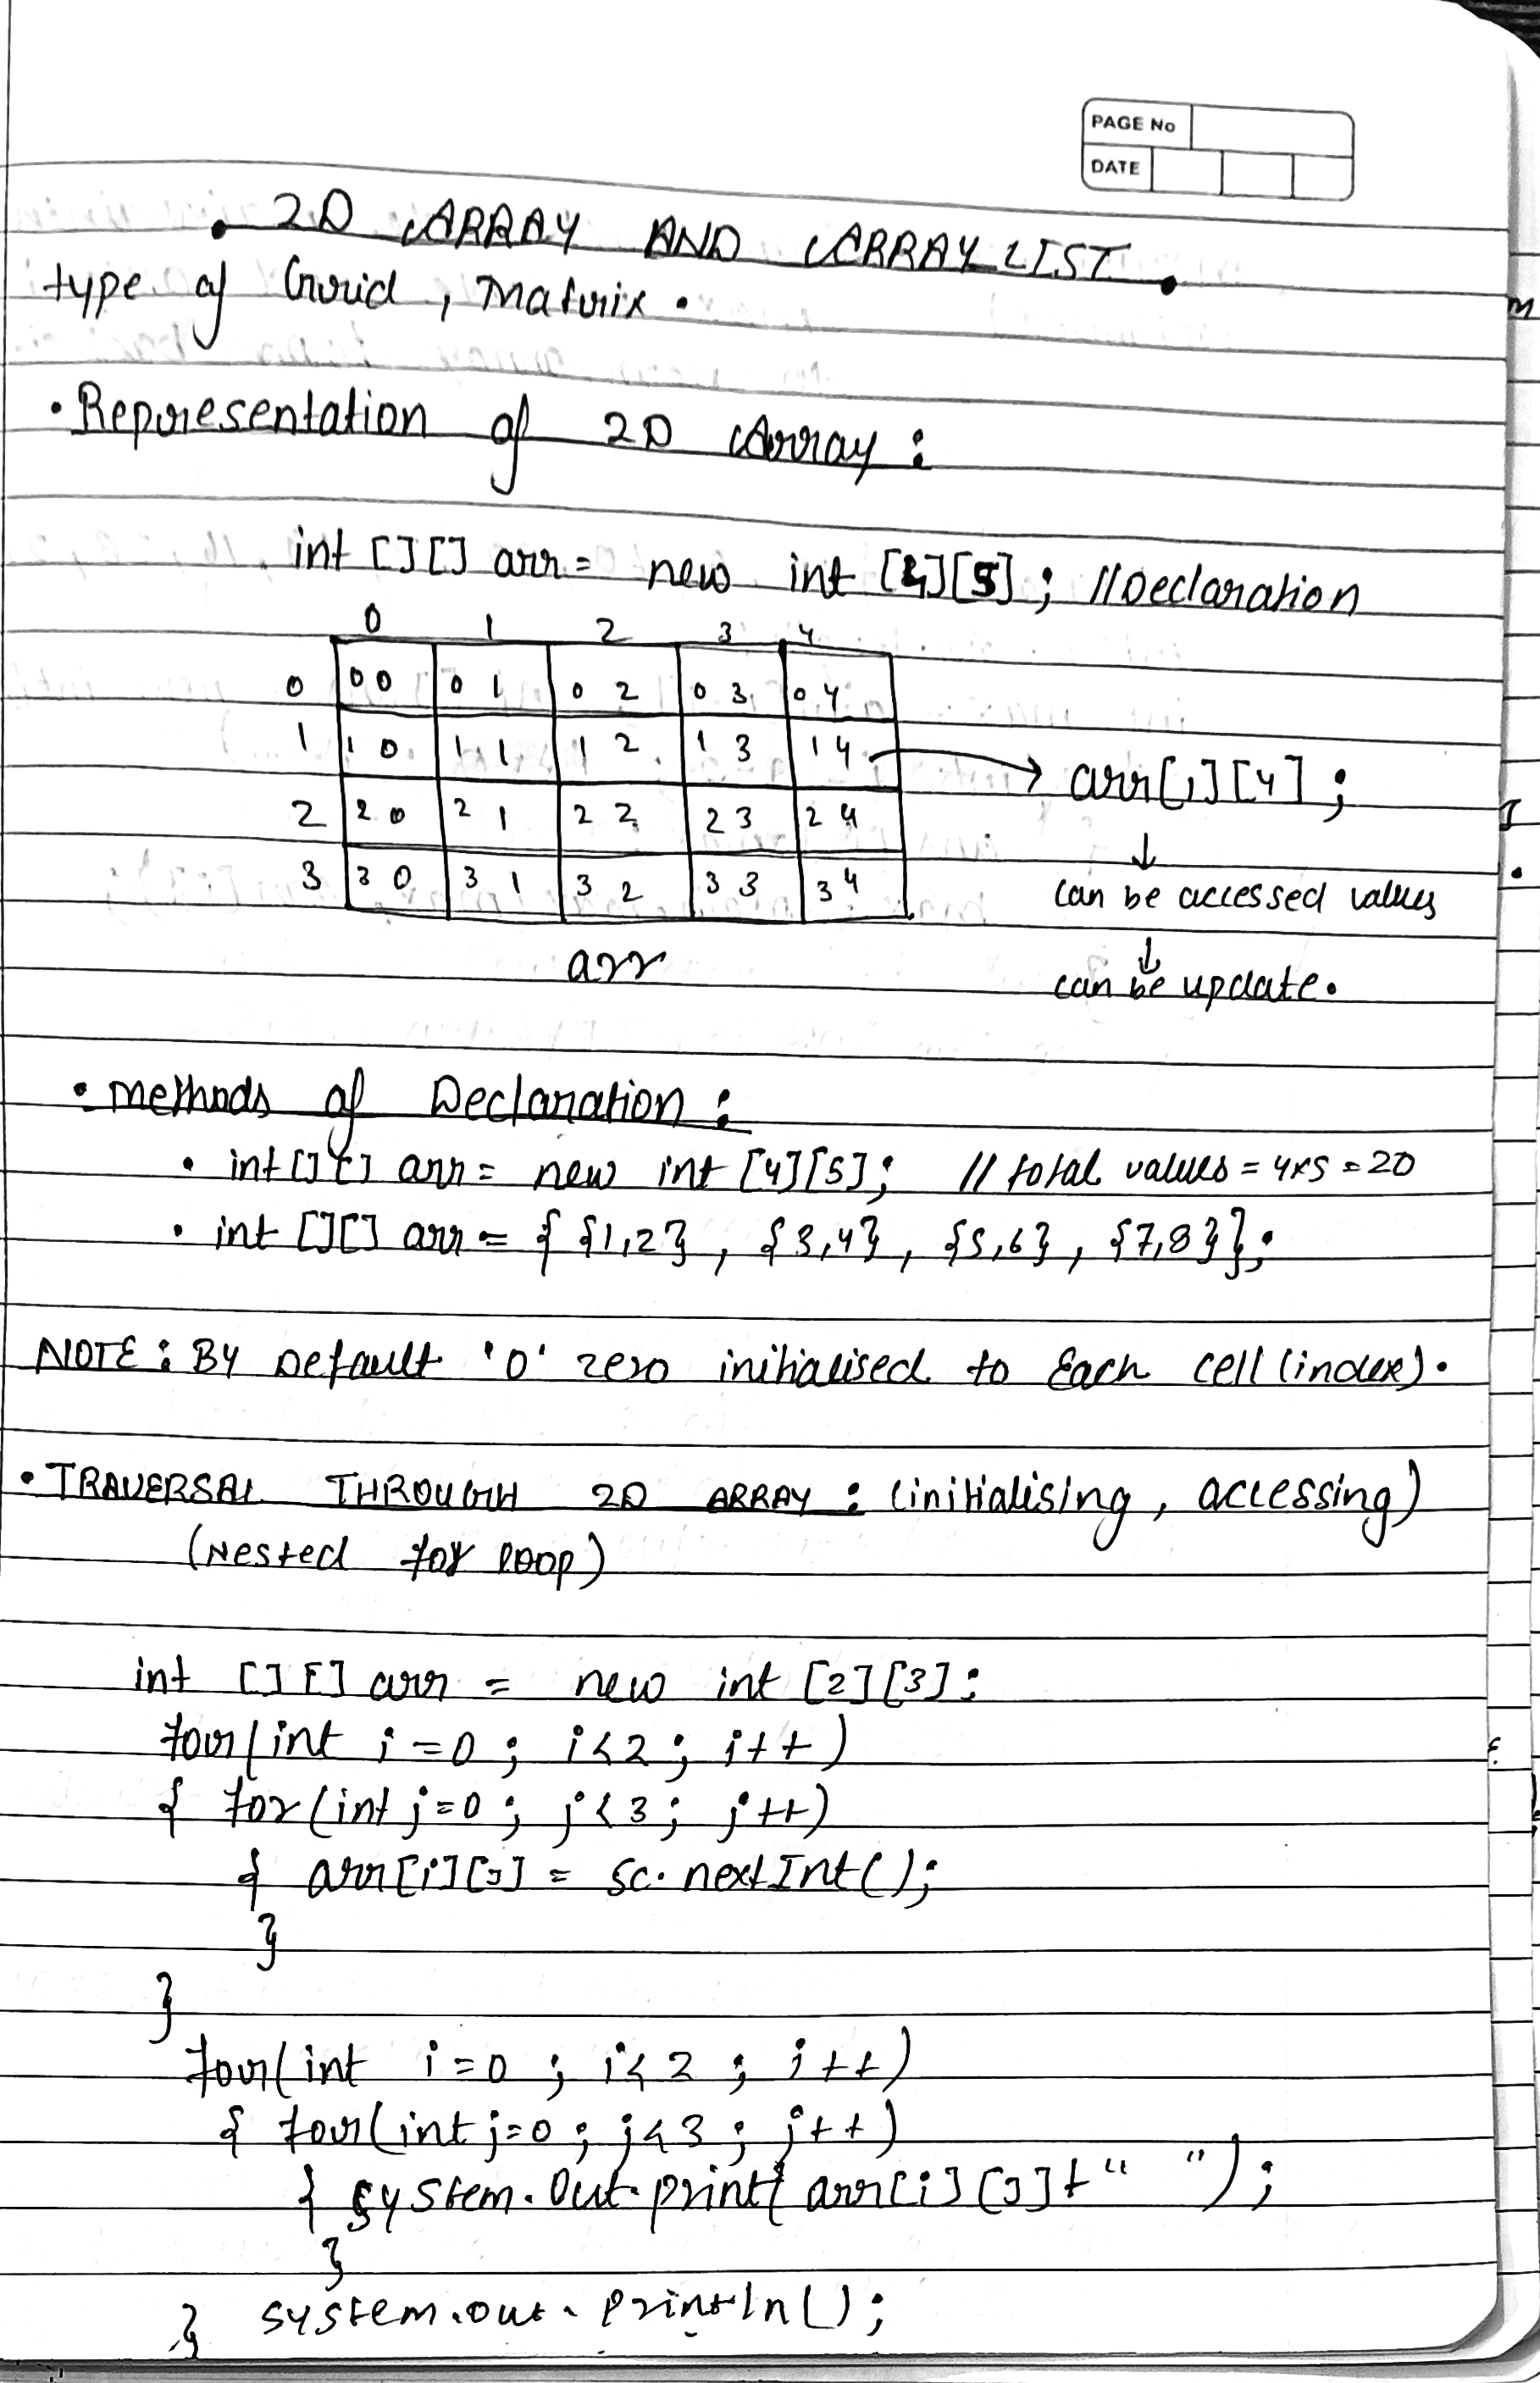 PAGE No
DATE
• 2D ARRAY AND ARRAYLIST •
type of Grid, Matrix.
• Representation of 2D Array :
int [][] arr = new int [4][5]; //Declaration
0 1 2 3 4
0 00 01 02 03 04
1 10 11 12 13 14 → arr[1][4];
2 20 21 22 23 24
↓
3 30 31 32 33 34 can be accessed values
arr ↓
can be update.
• methods of Declaration :
• int[][] arr = new int [4][5]; // total values = 4x5 = 20
• int [][] arr = { {1,2} , {3,4} , {5,6} , {7,8}};
NOTE : By Default '0' zero initialised to Each cell (index).
• TRAVERSAL THROUGH 2D ARRAY : (initialising, accessing)
(Nested for loop)
int [][] arr = new int [2][3];
for(int i=0 ; i<2 ; i++)
{ for(int j=0 ; j<3 ; j++)
{ arr[i][j] = sc.nextInt();
}
}
for(int i=0 ; i<2 ; i++)
{ for(int j=0 ; j<3 ; j++)
{ System.out.print(arr[i][j]+" ");
}
} system.out.println();